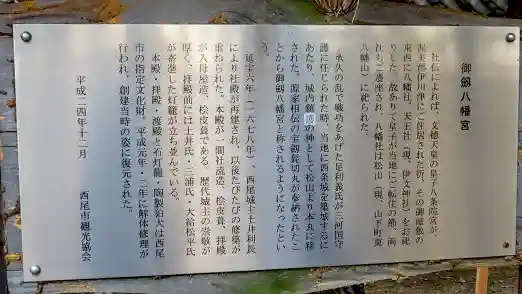 御劔八幡宮
社伝によれば、文徳天皇の皇子八条院宮が、
渥美郡伊川津にご住居された折、その御屋敷の
東西に八幡社、天王社（現、伊文神社）をお祀
りした。故あって皇子が当地にご転住の節、両
社もご遷座され、八幡社は松山（現、山下町東
八幡山）に祀られた。
承久の乱で戦功をあげた足利義氏が三河国守
護に任じられた時、当地に西条城を築城するに
あたり、城内鎮護の神として松山より本丸に移
された。源家相伝の宝剱髭切丸が奉納されたこ
とから御劔八幡宮と称されるようになったとい
う。
延宝六年（一六七八年）、西尾城主土井利長
により社殿が再建され、以後たびたびの修築が
重ねられた。本殿が一間社流造、桧皮葺、拝殿
が入母屋造、桧皮葺である。歴代城主の崇敬が
厚く、拝殿前には土井氏・三浦氏・大給松平氏
が寄進した灯籠が立ち並んでいる。
本殿・拝殿・渡殿と石灯籠・陶製狛犬は西尾
市の指定文化財。平成元年・二年に解体修理が
行われ、創建当時の姿に復元された。
平成二四年十二月
西尾市観光協会